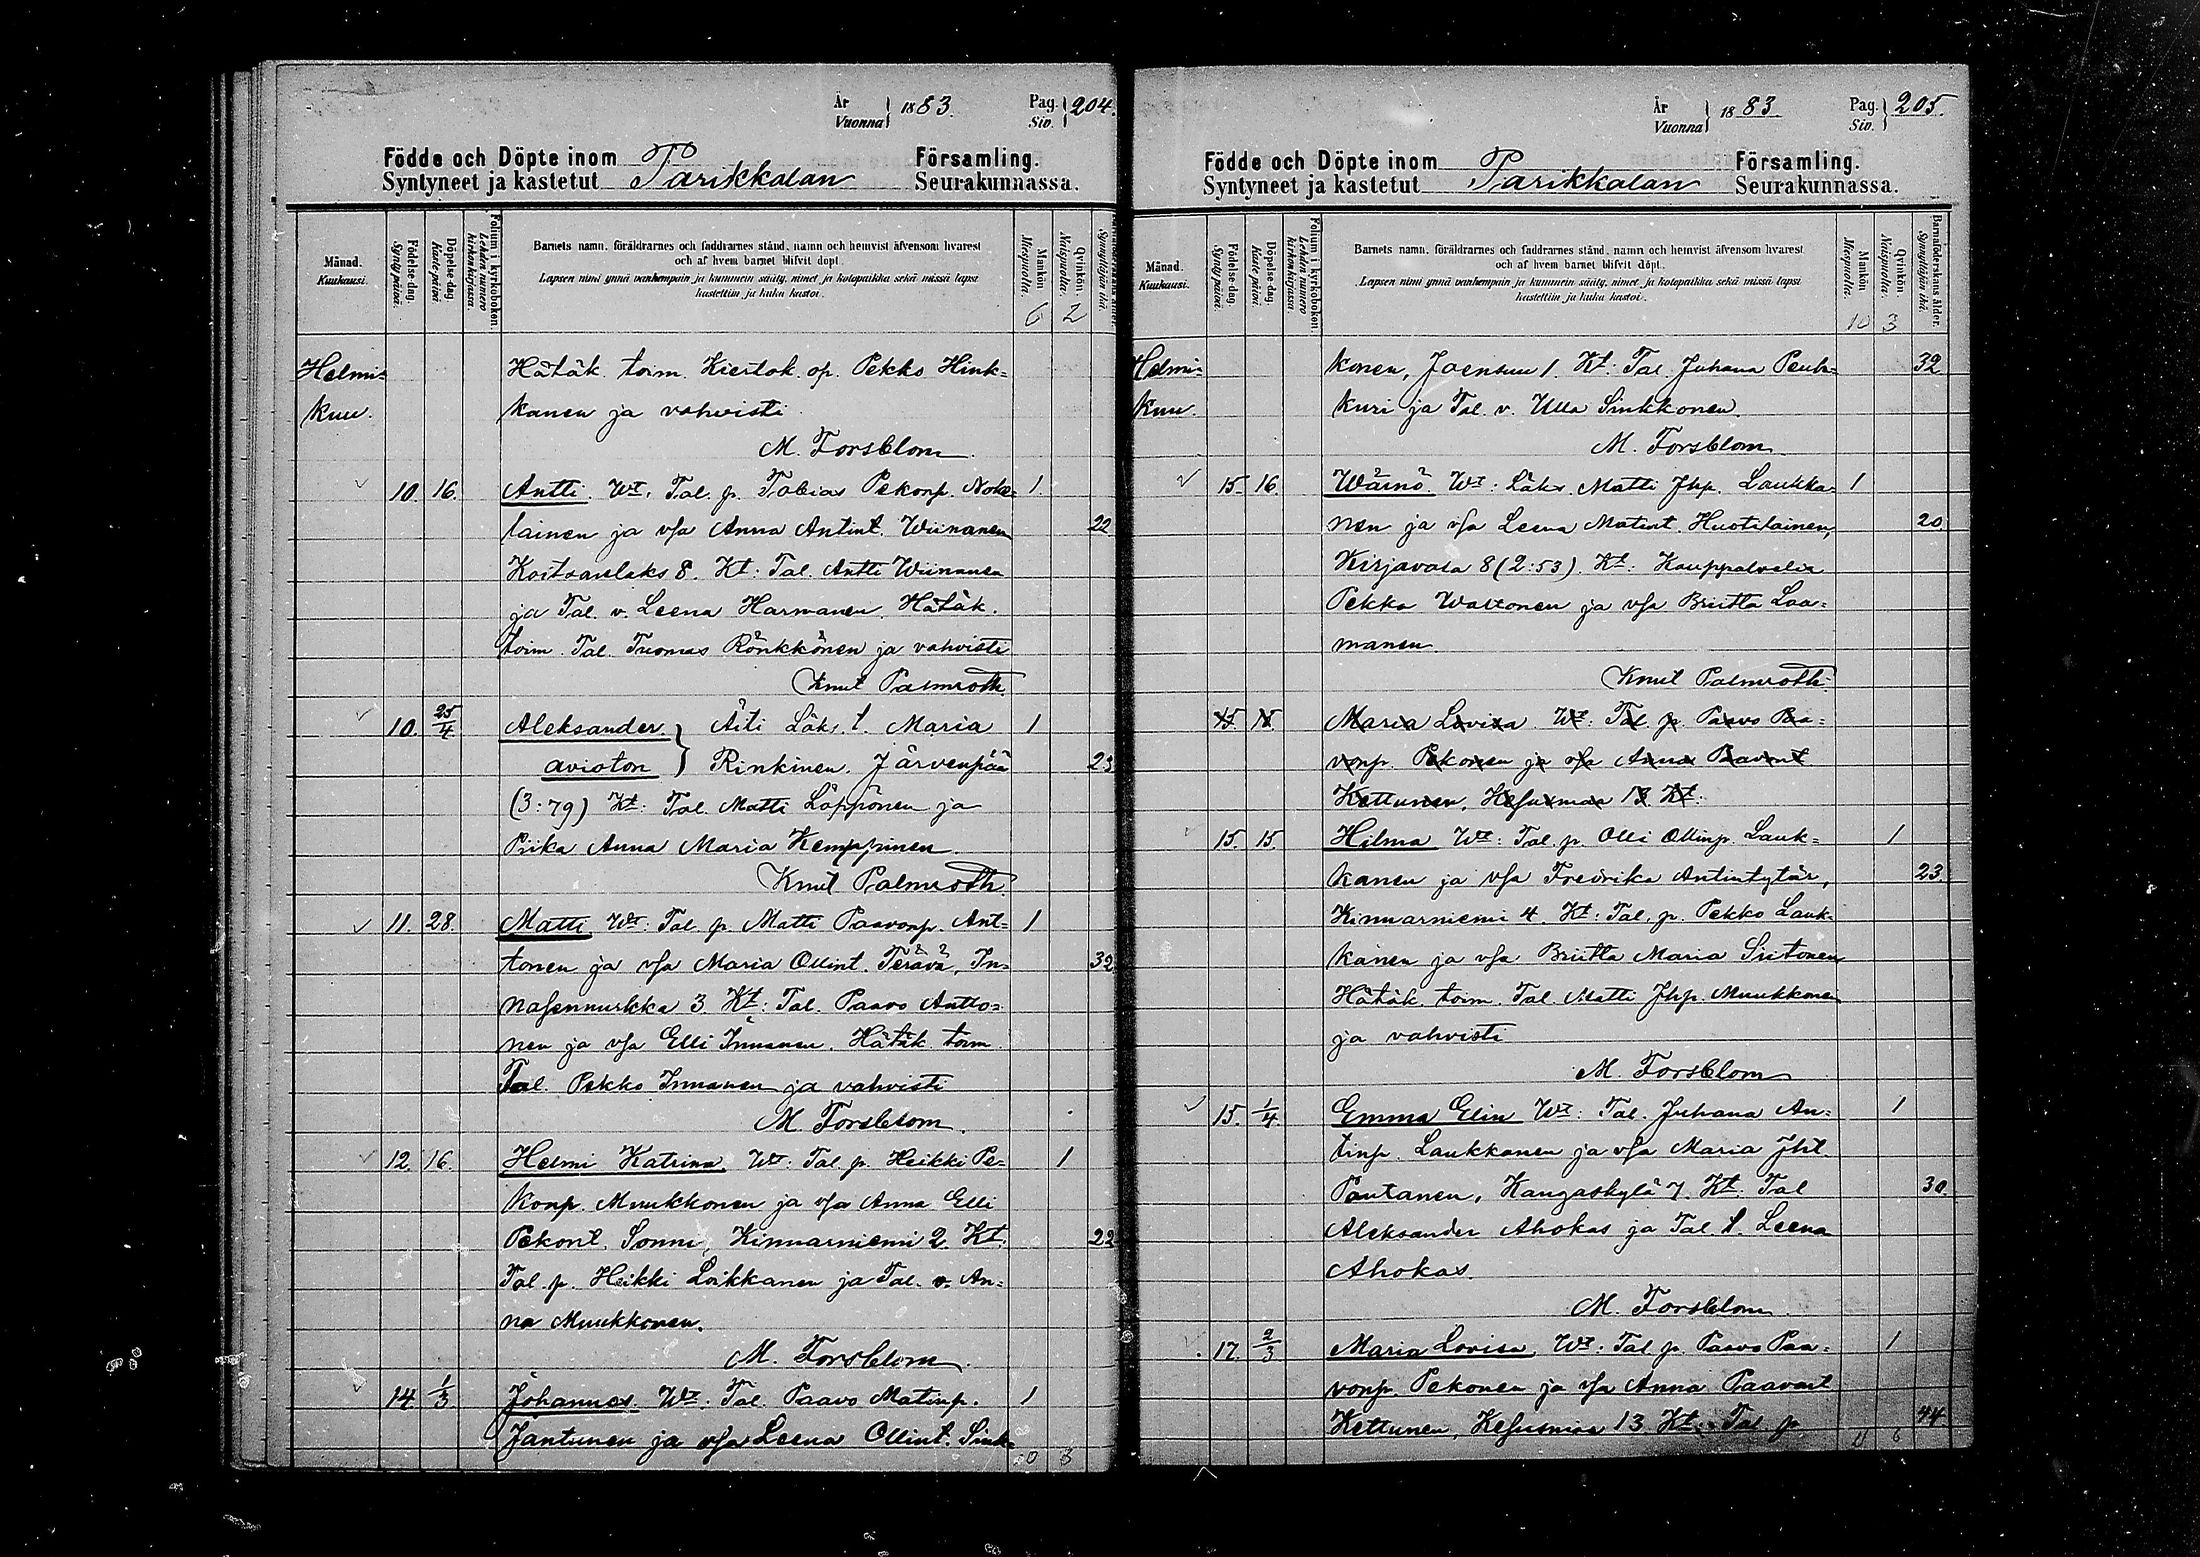 År
Vuonna } 1883. Pag.
Siv. } 204.
Födde och Döpte inom Parikkalan Församling.
Syntyneet ja kastetut Seurakunnassa.
Månad.
Kuukausi.
Födelse-dag.
Syntypäivä.
Döpelse-dag.
Kastepäivä.
Folium i kyrkoboken.
Lehden numero kirkonkirjassa.
Barnets namn, föräldrarnes och faddrarnes stånd, namn och hemvist äfvensom hvarest
och af hvem barnet blifvit döpt.
Lapsen nimi ynnä vanhempain ja kummein sääty, nimet ja kotopaikka sekä missä lapsi
kastettiin ja kuka kastoi.
Mankön.
Miespuolia.
Qvinkön.
Naispuolia.
Syntyttäjän ikä.
6 2
Helmi= Hätäk. toim. Kiertok. op. Pekko Hink=
kuu. kanen ja vahvisti
M. Forsblom.
10. 16. Antti. Wt: Tal. p. Tobias Pekonp. Noko= 1.
lainen ja vsa Anna Antint. Wiinanen 22
Koitsanlaks 8. Kt: Tal. Antti Wiinanen
ja Tal. v. Leena Harmanen. Hätäk.
toim. Tal. Tuomas Rönkkönen ja vahvisti
Knut Palmroth
10. 25/4 Aleksander. } Äiti Läks. t. Maria 1
avioton } Rinkinen. Järvenpää 23
(3:79) Kt: Tal. Matti Läppönen ja
Piika Anna Maria Kemppinen.
Knut Palmroth
11. 28. Matti. Wt: Tal. p. Matti Paavonp. Ant= 1
tonen ja vsa Maria Ollint. Terävä, In= 32
nasennurkka 3. Kt: Tal. Paavo Antto=
nen ja vsa Elli Innanen. Hätäk. toim.
Tal. Pekko Innanen ja vahvisti
M. Forsblom.
12. 16. Helmi Katrina. Wt: Tal. p. Heikki Pe= 1
konp. Muukkonen ja vsa Anna Elli
Pekont. Sonni, Kinnarniemi 2. Kt: 22
Tal. p. Heikki Loikkanen ja Tal. v. An=
na Muukkonen.
M. Forsblom.
14 1/3 Johannes. Wt: Tal. Paavo Matinp. 1
Jantunen ja vsa Leena Ollint. Sink=
År
Vuonna } 1883. Pag.
Siv. } 205.
Födde och Döpte inom Parikkalan Församling.
Syntyneet ja kastetut Seurakunnassa.
Månad.
Kuukausi.
Födelse-dag.
Syntypäivä.
Döpelse-dag.
Kastepäivä.
Folium i kyrkoboken.
Lehden numero kirkonkirjassa.
Barnets namn, föräldrarnes och faddrarnes stånd, namn och hemvist äfvensom hvarest
och af hvem barnet blifvit döpt.
Lapsen nimi ynnä vanhempain ja kummein sääty, nimet ja kotopaikka sekä missä lapsi
kastettiin ja kuka kastoi.
Mankön.
Miespuolia.
Qvinkön.
Naispuolia.
Barnaföderskans ålder.
Syntyttäjän ikä.
10 3
Helmi= konen, Joensuu 1. Kt: Tal. Juhana Peuh= 32
kuu. kuri ja Tal. v. Ulla Sinkkonen.
M. Forsblom
15. 16. Wäinö. Wt: Läks. Matti Jhp. Laukka= 1
nen ja vsa Leena Matint. Huotilainen, 20
Kirjavala 8 (2:53). Kt: Kauppalvelia
Pekka Waltonen ja vsa Briitta Laa=
manen.
Knut Palmroth.
15 15 Maria Lovisa. Wt: Tal. p. Paavo Paa=
vonp. Pekonen ja vsa Anna Paavont
Kettunen, Kesusmaa 13 Kt:
15. 15. Hilma Wt: Tal. p. Olli Ollinp. Lauk= 1
kanen ja vsa Fredrika Antintytär, 23.
Kinnarniemi 4. Kt: Tal. p. Pekko Lauk=
kanen ja vsa Briitta Maria Siitonen
Hätäk. toim. Tal. Matti Jhp. Muukkonen
ja vahvisti
M. Forsblom
15. 1/4 Emma Elin Wt: Tal. Juhana An= 1
tinp. Laukkanen ja vsa Maria Jht.
Pautanen, Kangaskylä 7. Kt: Tal 30.
Aleksander Ahokas ja Tal. t. Leena
Ahokas.
M. Forsblom
17. 2/3 Maria Lovisa, Wt: Tal. p. Paavo Paa= 1
vonp. Pekonen ja vsa Anna Paavont
Kettunen, Kesusmaa 13. Kt: Tal p. 44